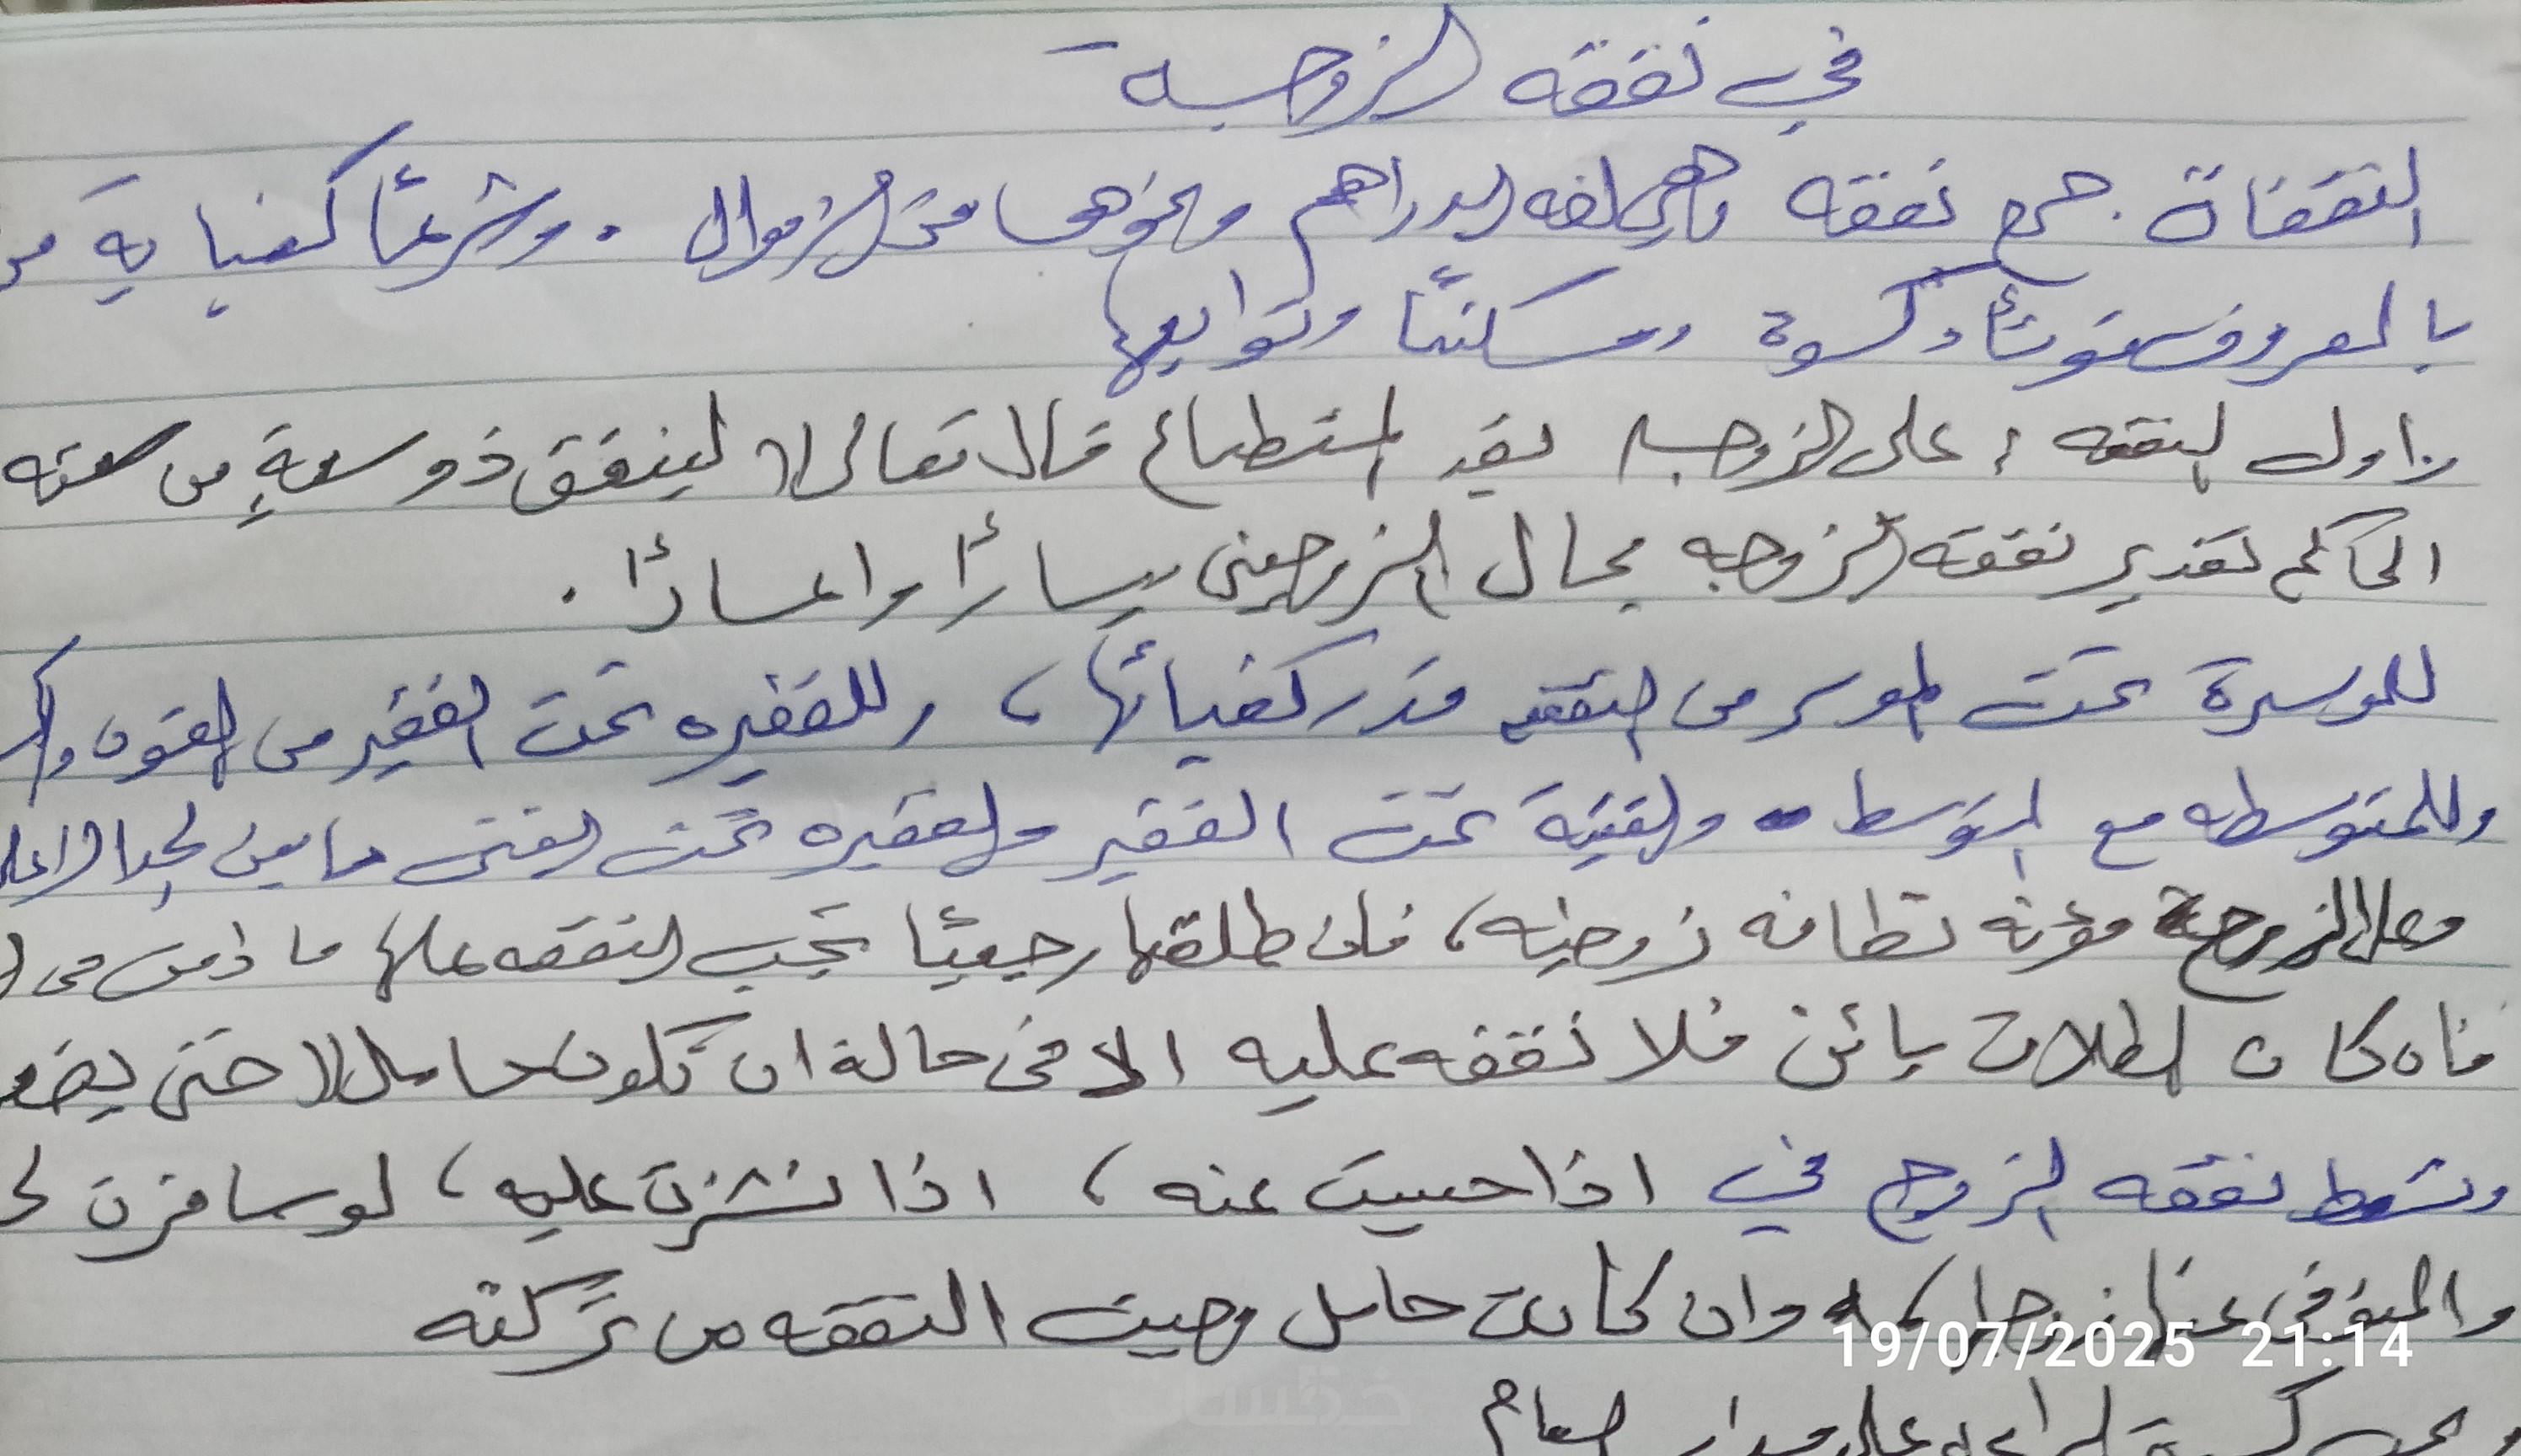 في نفقه الزوجيه -
النفقاة . جمع نفقه وهي لغه الدراهم ونحوها من الاموال . وشرعًا كفاية
بالمعروف قوتًا وكسوة ومسكنًا وتوابعها
اول النفقه : على الزوجيه بقدر المستطاع قال تعالى (( لينفق ذو سعةٍ من سعته
الحاكم تقدير نفقه الزوجه بحال الزوجين يسارًا واعسارًا .
للموسرة تحت الموسر من النفقه قدر كفياتها ، وللفقيره تحت الفقير من القوت
وللمتوسطه مع المتوسط ولغنية تحت الفقير ولفقيره تحت الغني ما بين
وعلى الزوج مؤنه نظافه زوجته ، فان طلقها رجعيًا تجب النفقه عليها ما دامت في
فان كان الطلاق بائن فلا نفقه عليه الا في حالة ان تكون حامل (( حتى يضع
وتسقط نفقه الزوج في اذا حبست عنه ، اذا نشزت عليه ، لو سافرت
والمتوفى عنها زوجها وان كانت حامل وجبت النفقه من تركته
العام
19/07/2025 21:14
خمسات